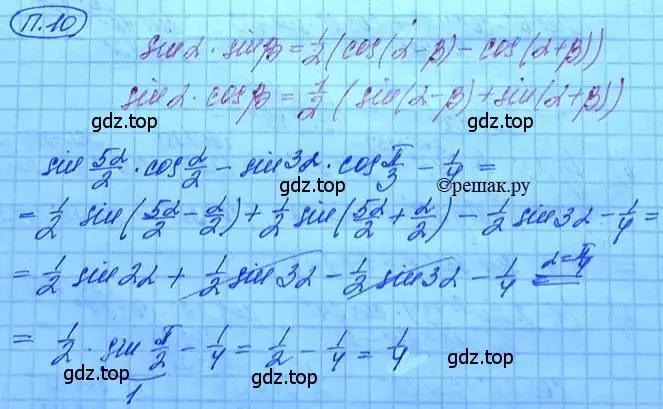 П.10
sin α · sin β = 1/2 (cos(α-β) - cos(α+β))
sin α · cos β = 1/2 (sin(α-β) + sin(α+β))
gdz.top gdz.top
sin 5α/2 · cos α/2 - sin 3α · cos π/3 - 1/4 =
gdz.top ©решак.ру
= 1/2 sin(5α/2 - α/2) + 1/2 sin(5α/2 + α/2) - 1/2 sin 3α - 1/4 =
gdz.top gdz.top
= 1/2 sin 2α + 1/2 sin 3α - 1/2 sin 3α - 1/4 α=π/4 =
gdz.top
= 1/2 · sin π/2 - 1/4 = 1/2 - 1/4 = 1/4
1
gdz.top gdz.top